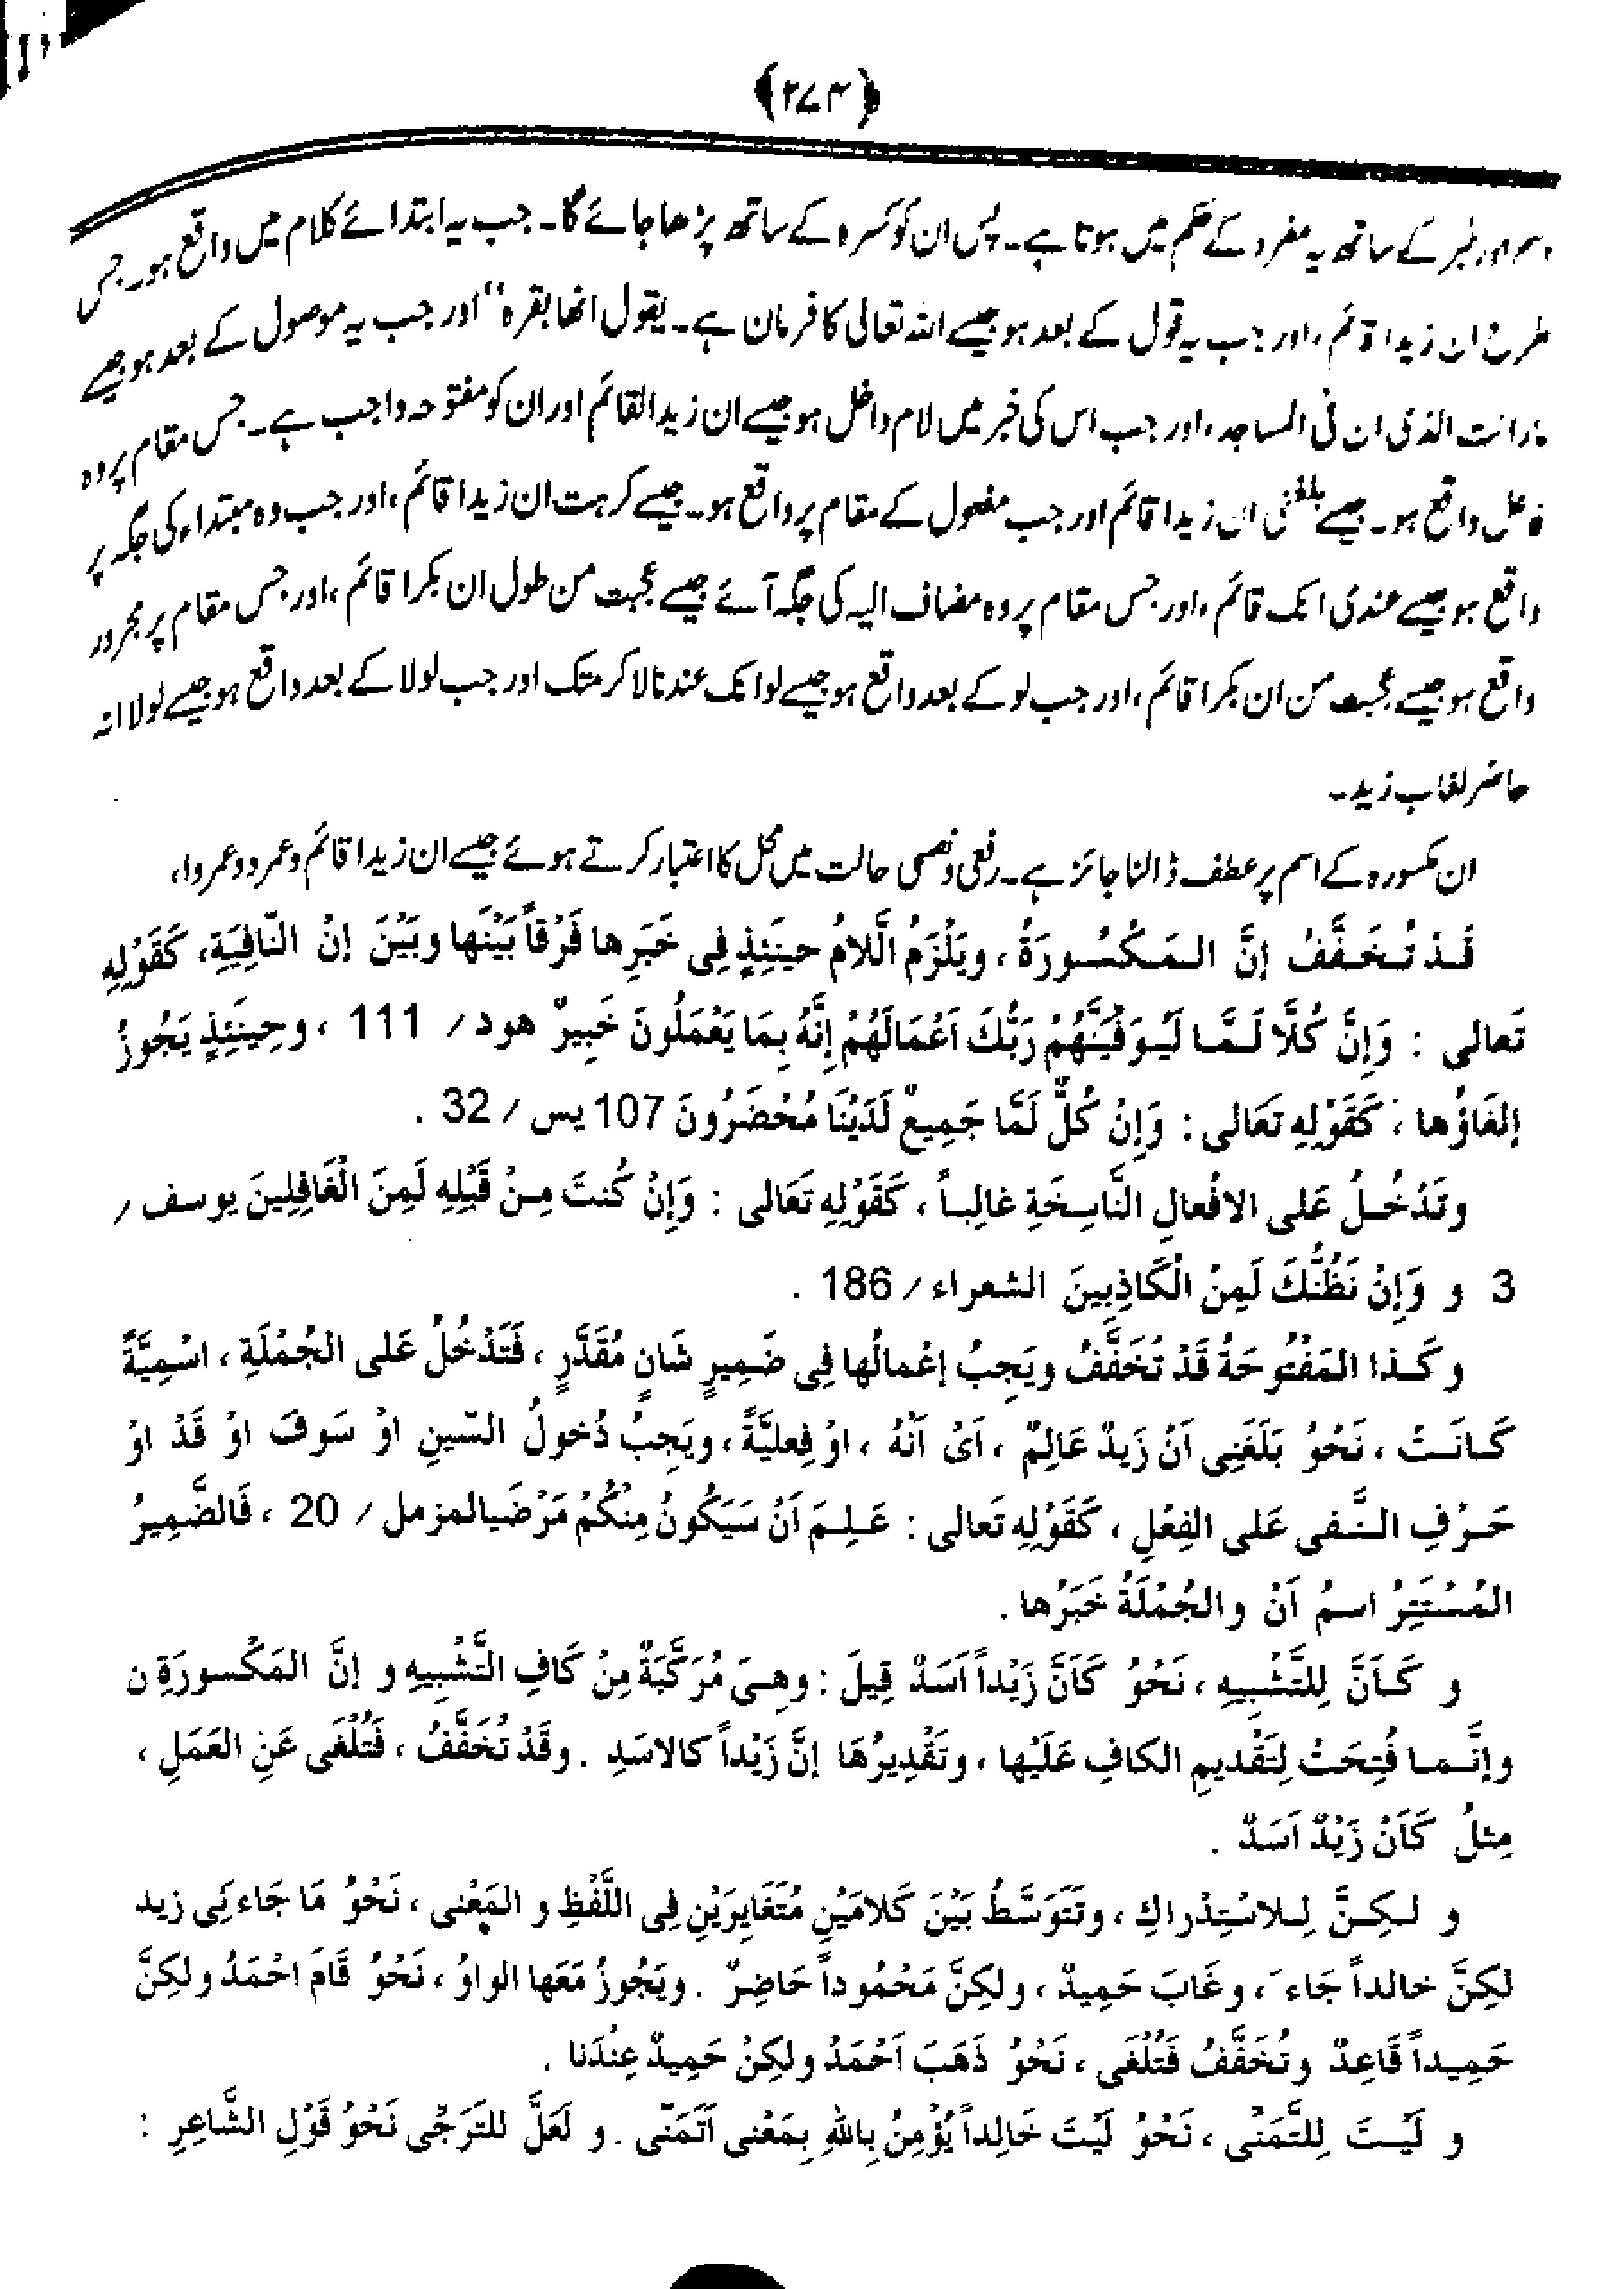 ﴿۲۷۴﴾
اسم اور خبر کے ساتھ یہ مفرد کے حکم میں ہوتا ہے۔ پس ان کو کسرہ کے ساتھ پڑھا جائے گا۔ جب یہ ابتدائے کلام میں واقع ہو۔ جس
طرح ان زیدا قائم، اور جب یہ قول کے بعد ہو جیسے اللہ تعالی کا فرمان ہے۔ یقول انھا بقرہ" اور جب یہ موصول کے بعد ہو جیسے
مارایت الذی ان فی المساجد، اور جب اس کی خبر میں لام داخل ہو جیسے ان زیدا لقائم اور ان کو مفتوحہ واجب ہے۔ جس مقام پر وہ
فاعل واقع ہو۔ جیسے بلغنی ان زیدا قائم اور جب مفعول کے مقام پر واقع ہو۔ جیسے کرہت ان زیدا قائم، اور جب وہ مبتداء کی جگہ پر
واقع ہو جیسے عندی انک قائم، اور جس مقام پر وہ مضاف الیہ کی جگہ آئے جیسے عجبت من طول ان بکرا قائم، اور جس مقام پر مجرور
واقع ہو جیسے عجبت من ان بکرا قائم، اور جب لو کے بعد واقع ہو جیسے لو انک عندنا لاکرمتک اور جب لولا کے بعد واقع ہو جیسے لولا انہ
حاضر لغاب زید۔
ان مکسورہ کے اسم پر عطف ڈالنا جائز ہے۔ رفعی و نصبی حالت میں محل کا اعتبار کرتے ہوئے جیسے ان زیدا قائم و عمرو و عمروا،
قَدْ تُخَفَّفُ إنَّ المَكْسُورَةُ ، ويَلْزَمُ الَّلامُ حِينَئِذٍ فِى خَبَرِها فَرْقاً بَيْنَها وبَيْنَ إنْ النّافِيَةِ، كَقَوْلِهِ
تَعالى : وَإِنَّ كُلَّا لَمَّا لَيُوَفِّيَنَّهُمْ رَبُّكَ اَعْمَالَهُمْ إِنَّهُ بِمَا يَعْمَلُونَ خَبِيرٌ هود ⁄ 111 ، وحِينَئِذٍ يَجُوزُ
إلغَاؤُها ، كَقَوْلِهِ تَعَالى : وَإِنْ كُلٌّ لَمَّا جَمِيعٌ لَدَيْنَا مُحْضَرُونَ 107 يس ⁄ 32 .
وتَدْخُلُ عَلى الافْعالِ النَّاسِخَةِ غالِباً ، كَقَوْلِهِ تَعَالى : وَإِنْ كُنتَ مِنْ قَبْلِهِ لَمِنَ الْغَافِلِينَ يوسف ⁄
3 و وَإِنْ نَظُنُّكَ لَمِنْ الْكَاذِبِينَ الشعراء ⁄ 186 .
وكَذا المَفْتُوحَةُ قَدْ تُخَفَّفُ ويَجِبُ إعْمالُها فِى ضَمِيرِ شَانٍ مُقَدَّرٍ ، فَتَدْخُلُ عَلى الجُمْلَةِ ، اسْمِيَّةً
كَانَتْ ، نَحْوُ بَلَغَنِى اَنْ زَيدٌ عَالِمٌ ، اَىْ اَنْهُ ، اوْ فِعليَّةً ، ويَجِبُ دُخولُ السّينِ اوْ سَوفَ اوْ قَدْ اوْ
حَرْفِ النَّفى عَلى الفِعْلِ ، كَقَوْلِهِ تَعالى : عَلِمَ اَنْ سَيَكُونُ مِنْكُمْ مَرْضَيالمزمل ⁄ 20 ، فَالضَّمِيرُ
المُسْتَتِرُ اسمُ اَنْ والجُمْلَةُ خَبَرُها .
و كَاَنَّ لِلتَّشْبِيهِ ، نَحْوُ كَاَنَّ زَيْداً اَسَدٌ قِيلَ : وهِىَ مُرَكَّبَةٌ مِنْ كَافِ التَّشْبِيهِ و إنَّ المَكْسورَةِ ن
وإنَّما فُتِحَتْ لِتَقْدِيمِ الكافِ عَلَيْها ، وتَقْدِيرُهَا إنَّ زَيْداً كالاسَدِ . وقَدْ تُخَفَّفُ ، فَتُلْغَى عَنِ العَمَلِ ،
مِثلُ كَاَنْ زَيْدٌ اَسَدٌ .
و لكِنَّ لِلاسْتِدْراكِ ، وتَتَوَسَّطُ بَيْنَ كَلامَيْنِ مُتَغَايِرَيْنِ فِى اللَّفْظِ و المَعْنى ، نَحْوُ مَا جَاء نِى زيد
لكِنَّ خالداً جَاء َ ، وغَابَ حَمِيدٌ ، ولكِنَّ مَحْمُوداً حَاضِرٌ . ويَجُوزُ مَعَها الواوُ ، نَحْوُ قَامَ احْمَدُ ولكِنَّ
حَمِيداً قَاعِدٌ وتُخَفَّفُ فَتُلْغَى ، نَحْوُ ذَهَبَ اَحْمَدُ ولكِنْ حَمِيدٌ عِنْدَنا .
و لَيْتَ لِلتَّمَنّى ، نَحْوُ لَيْتَ خَالِداً يُؤْمِنُ بِاللهِ بِمَعْنى اَتَمَنّى . و لَعَلَّ للتَرَجّى نَحْوُ قَوْلِ الشَّاعِرِ :